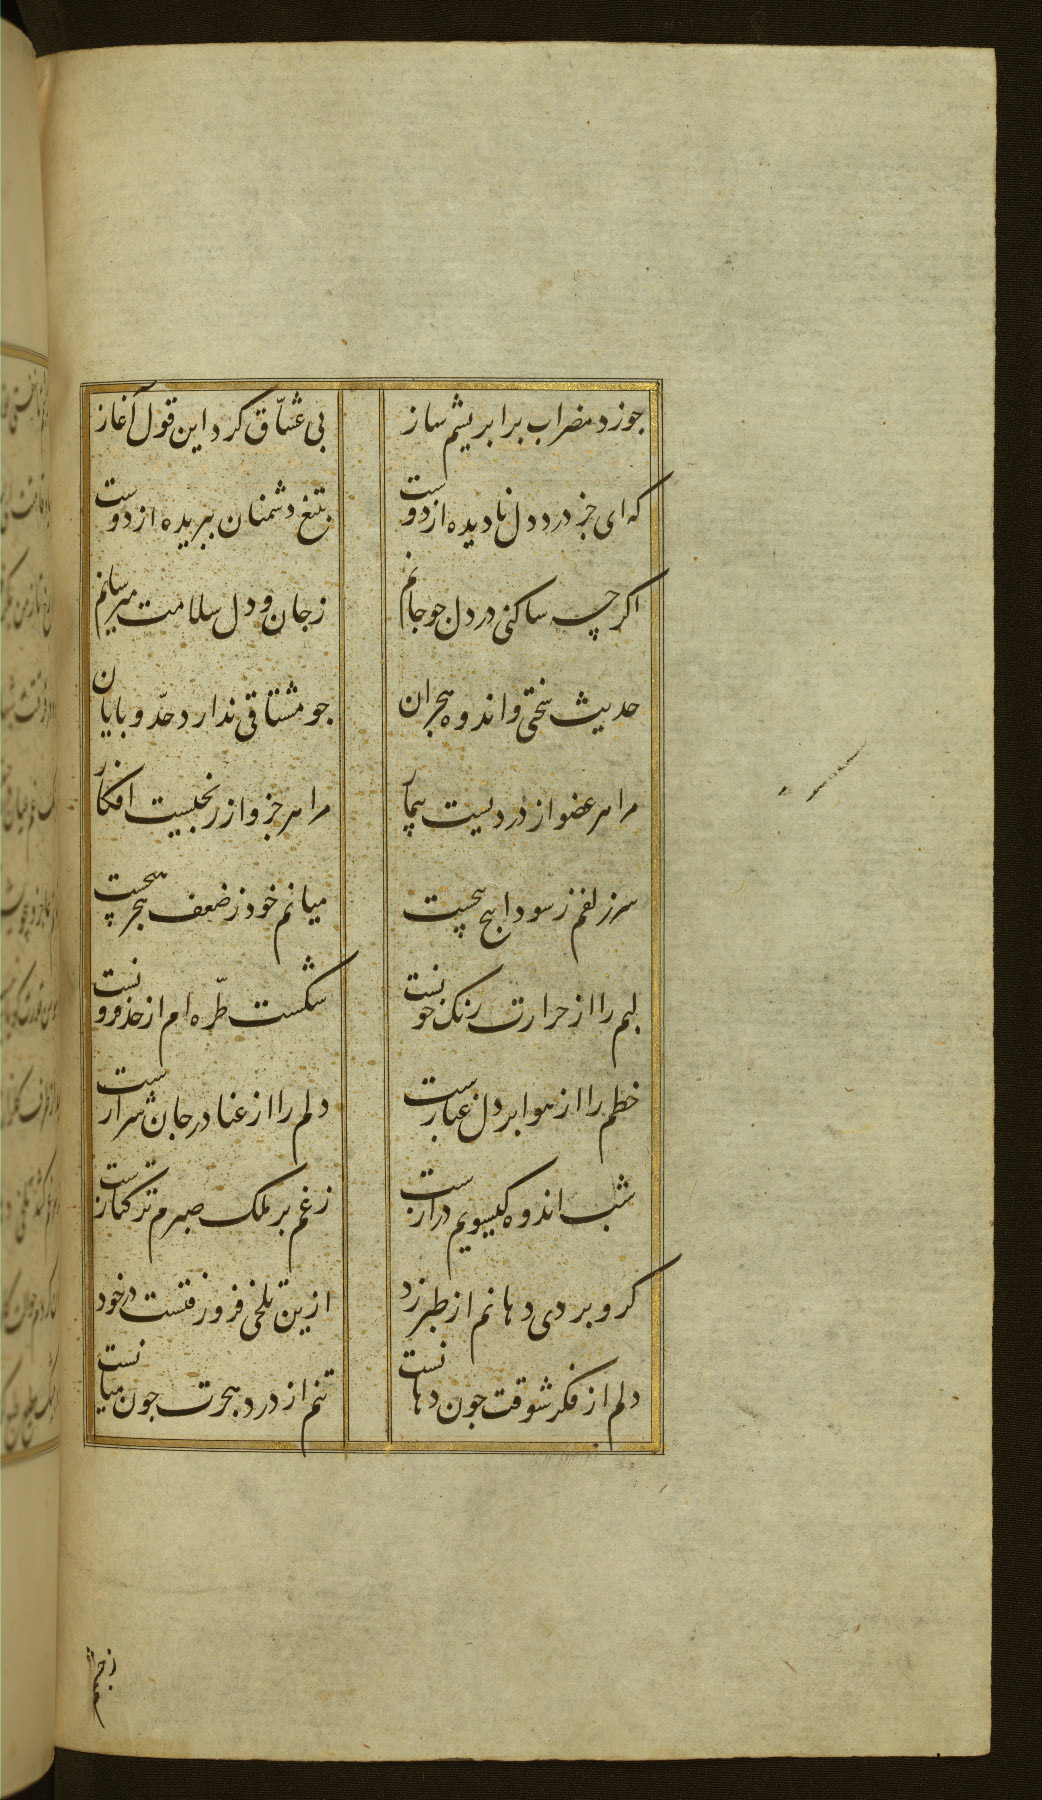 جو زد مضراب برابریشم ساز
بی عشّاق کرد این قول آغاز
که ای جز درد دل نادیده از دوست
بتیغ دشمنان ببریده از دوست
اکر چه ساکنی در دل جو جانم
ز جان و دل سلامت میرسانم
حدیث سختی و اندوه هجران
جو مشتاقی ندارد حدّ و پایان
مرا هر عضو از دردیست بیمار
مرا هر جزو از رنجیست افکار
سر زلفم ز سودا هیچ
میانم خود ز ضعف هجر
لبم را از حرارت رنک خونست
شکست طرّه ام از حد فزونست
خطم را از هوا بر دل غبارست
دلم را از عنا در جان شرارست
شب اندوه کیسویم درازست
ز غم بر ملک صبرم ترکتازست
کرو بردی دهانم از طبرزد
ازین تلخی فرو رفتست در خود
دلم از فکر شوقت جون دهانست
تنم از درد هجرت جون میانست